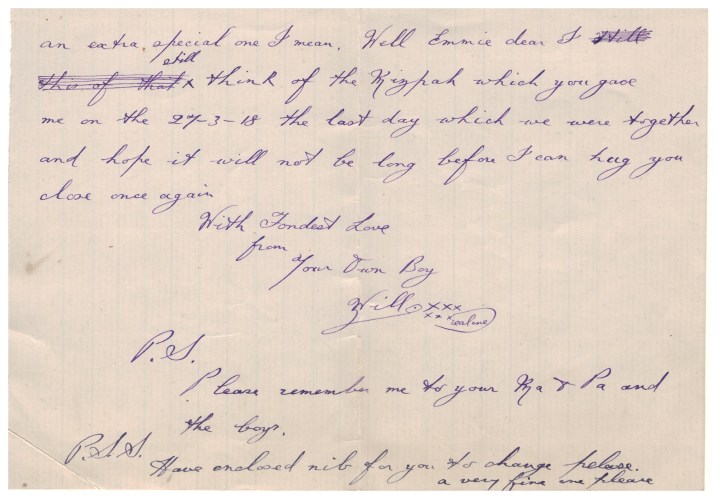 an extra special one I mean. Well Emmie dear I ~~still~~
~~this of that~~ still x think of the Mizpah which you gave
me on the 27-3-18 the last day which we were together
and hope it will not be long before I can hug you
close once again
With Fondest Love
from
Your Own Boy
Will xxx
xxx
P.S.
Please remember me to your Ma & Pa and
the boys.
P.S.S.
Have enclosed nib for you to change pelease.
a very fine one please